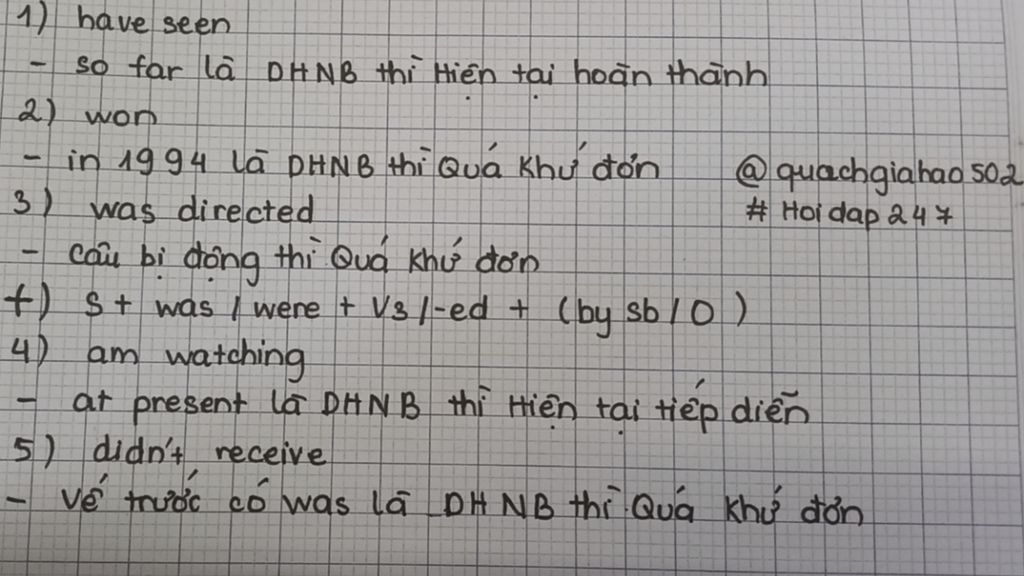 1) have seen
- so far là DHNB thì Hiện tại hoàn thành
2) won
- in 1994 là DHNB thì Quá khứ đơn
@quachgiahao502
3) was directed
# Hoidap247
- câu bị động thì Quá khứ đơn
+) S + was / were + V3 / -ed + (by sb / O)
4) am watching
- at present là DHNB thì Hiện tại tiếp diễn
5) didn't receive
- vế trước có was là DHNB thì Quá khứ đơn